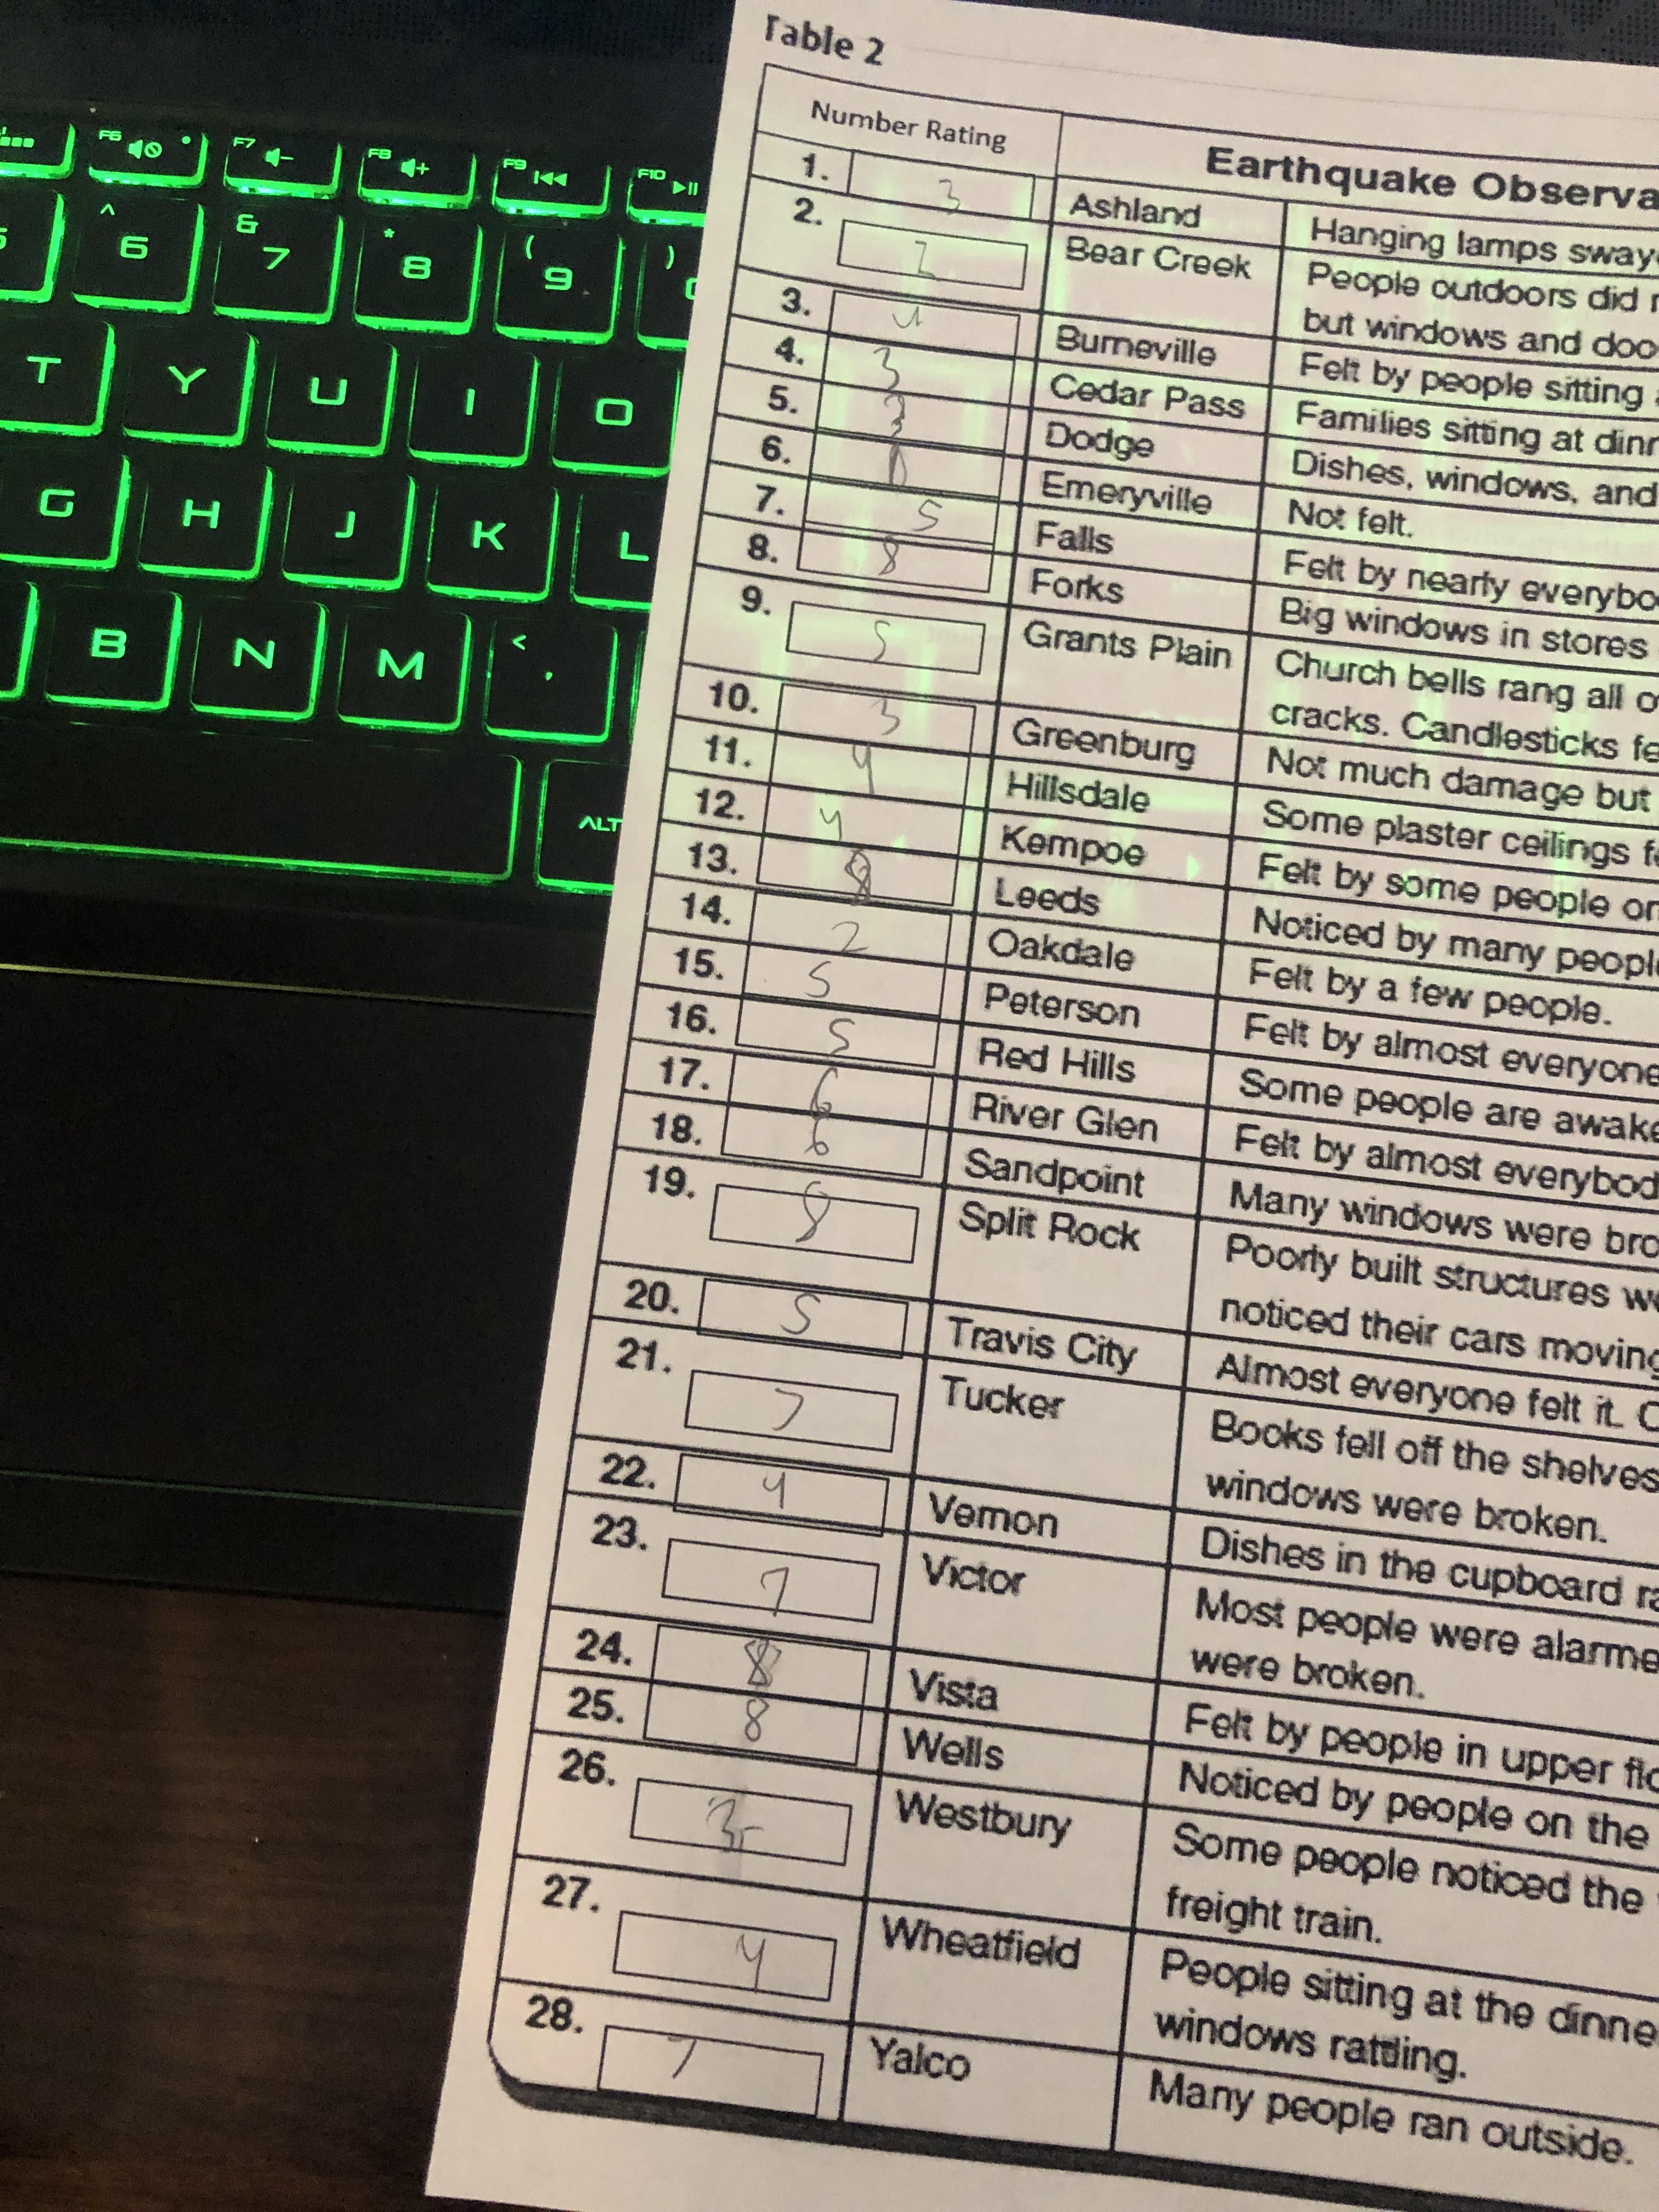 F6
F7
F8
F9
F10
^
6
&
7
*
8
(
9
)
T
Y
U
I
O
G
H
J
K
L
B
N
M
<
,
ALT
Table 2
Number Rating
Earthquake
1. 3 Ashland Hanging lamps
2. 2 Bear Creek People outdoors did
but windows and
3. 4 Burneville Felt by people sitting
4. 3 Cedar Pass Families sitting at
5. Dodge Dishes, windows, and
6. Emeryville Not felt.
7. 5 Falls Felt by nearly
8. 8 Forks Big windows in stores
9. 5 Grants Plain Church bells rang all
cracks. Candlesticks
10. 3 Greenburg Not much damage but
11. 4 Hillsdale Some plaster ceilings
12. 4 Kempoe Felt by some people
13. 8 Leeds Noticed by many
14. 2 Oakdale Felt by a few people.
15. 5 Peterson Felt by almost everyone
16. 5 Red Hills Some people are
17. 6 River Glen Felt by almost
18. 6 Sandpoint Many windows were
19. 8 Split Rock Poorly built structures
noticed their cars
20. 5 Travis City Almost everyone felt it.
21. 7 Tucker Books fell off the shelves
windows were broken.
22. 4 Vernon Dishes in the cupboard
23. 7 Victor Most people were
were broken.
24. 8 Vista Felt by people in upper
25. 8 Wells Noticed by people on the
26. Westbury Some people noticed the
freight train.
27. 4 Wheatfield People sitting at the
windows rattling.
28. 7 Yalco Many people ran outside.